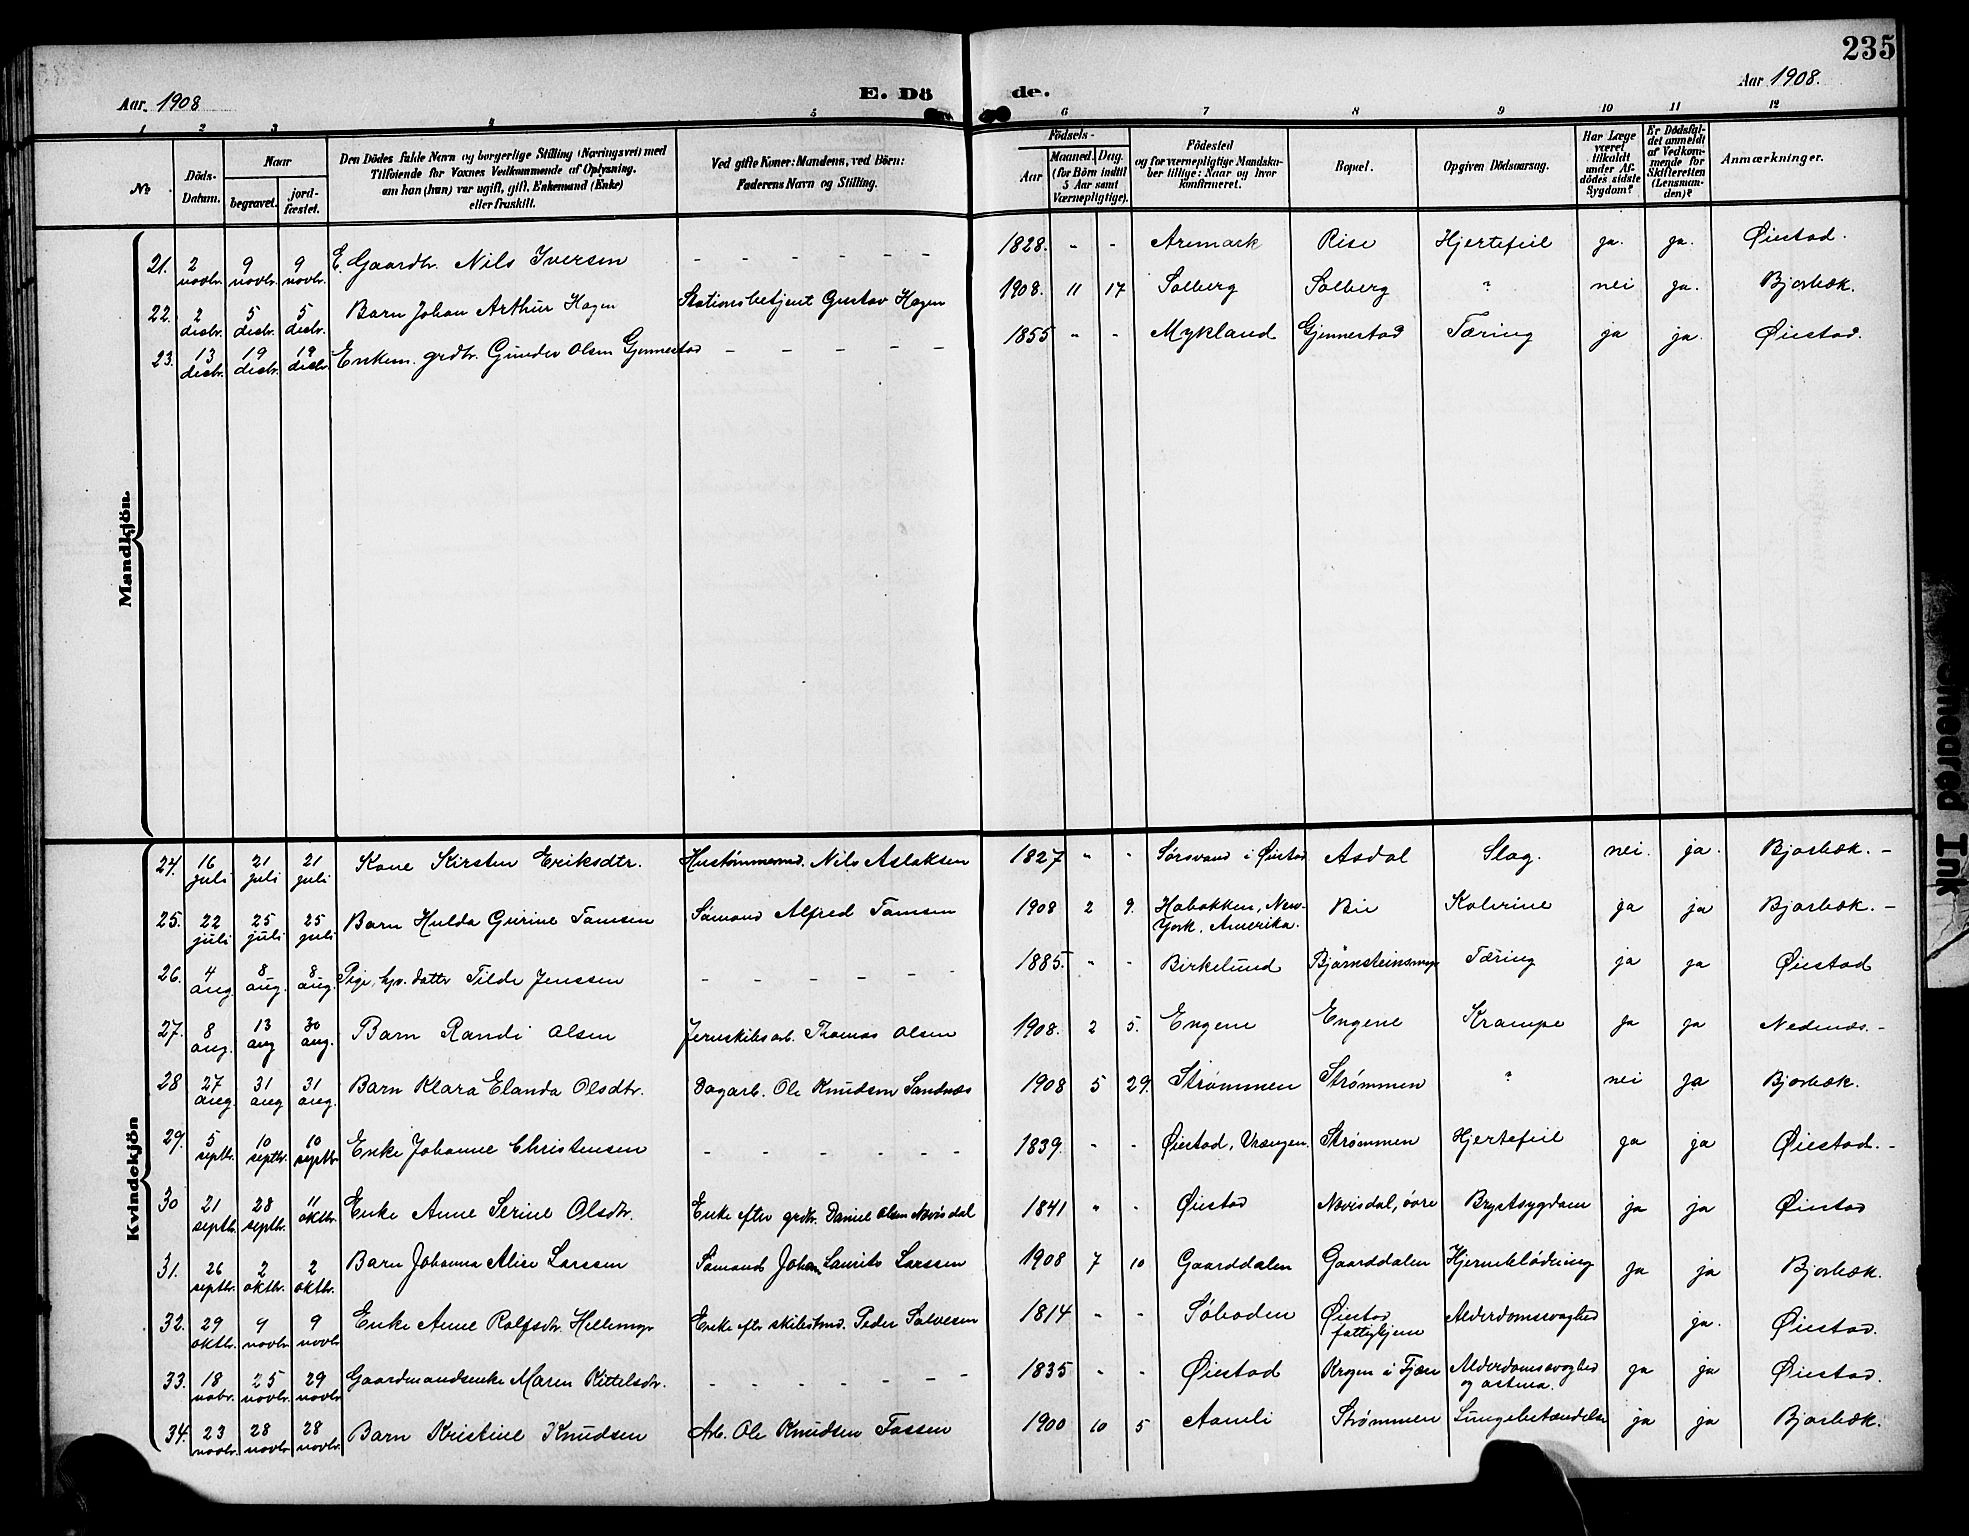 235
Aar. 1908
E. Döde.
Aar 1908.
1 2 3 4 5 6 7 8 9 10 11 12
No
Döds-Datum.
Naar
begravet.
jord-fæstet.
Den Dödes fulde Navn og borgerlige Stilling (Næringsvei) med
Tilföiende for Voxnes Vedkommende af Oplysning,
om han (hun) var ugift, gift, Enkemand (Enke)
eller fraskilt.
Ved gifte Koner: Mandens, ved Börn:
Faderens Navn og Stilling.
Födsels-
Aar
Maaned. Dag.
(for Börn indtil
5 Aar samt
Værnepligtige).
Födested
og for værnepligtige Mandska-
ber tillige: Naar og hvor
konfirmeret.
Bopæl.
Opgiven Dödsaarsag.
Har Læge
været
tilkaldt
under Af-
dödes sidste
Sygdom?
Er Dödsfal-
det anmeldt
af Vedkom-
mende for
Skifteretten
(Lensman-
den)?
Anmærkninger.
Mandkjön.
21. 2 novbr. 9 novbr. 9 novbr. E. Gaardbr. Nils Iversen - - - - - - 1828. - - Aremark Rise Hjertefeil ja. ja. Øiestad.
22. 2 decbr. 5 decbr. 5 decbr. Barn Johan Arthur Hagen Stationsbetjent Gustav Hagen 1908. 11 17 Solberg Solberg ? nei ja. Bjorbæk.
23. 13 decbr. 19 decbr. 19 decbr. Enkem. grdbr. Gunder Olsen Gjennestad - - - - - 1855 - - Mykland Gjennestad Tæring ja ja. Øiestad.
Kvindekjön
24. 16 juli 21 juli 21 juli Kone Kirsten Eriksdtr. Hustømmermd. Nils Aslaksen 1827 " " Sörsvand i Øiestad Asdal Slag. nei. ja. Bjorbæk. -
25. 22 juli 25 juli 25 juli Barn Hulda Gurine Tamsen Sömand Alfred Tamsen 1908 2 9. Hobokken, New-York, Amerika. Bie Kolerine ja ja Bjorbæk. -
26. 4 aug. 8 aug. 8 aug. Pige, hjv. datter Tilde Jenssen - - - - - 1885. - - Birkelund Bjørnsteinsmyr Tæring ja ja Øiestad
27. 8 aug. 13 aug 30 aug. Barn Randi Olsen Jernskibsarb. Thomas Olsen 1908. 2 5. Engene Engene Krampe ja ja Nedenæs. -
28 27 aug. 31 aug 31 aug. Barn Klara Elanda Olsdtr. Dagarb. Ole Knudsen Sandnæs 1908 5 29. Strømmen Strømmen ? nei ja Bjorbæk.
29. 5 septbr. 10 septbr. 10 septbr. Enke Johanne Christensen - - - - - - 1839. - - Øiestad, Vrængen. Strømmen Hjertefeil ja ja Øiestad. -
30 21 septbr. 28 septbr. 11 oktbr. Enke Anne Serine Olsdtr. Enke efter grdbr. Daniel Olsen Nævisdal 1841 " - Øiestad Nævisdal, övre Brystsygdom ja ja Øiestad
31. 26 septbr. 2 oktbr. 2 oktbr. Barn Johanna Alise Larssen Sømand Johan Laurits Larssen 1908 7 10 Gaarddalen Gaarddalen Hjerneblødning ja ja Bjorbæk.
32. 29 oktbr. 9 novbr. 9 novbr. Enke Anne Rolfsdtr. Hellemyr Enke efter skibstmd. Peder Salvesen 1814 - - Söboden Øiestad fattighjem Alderdomssvaghed ja. Øiestad.
33. 18 novbr. 25 novbr. 29 novbr. Gaardmandsenke Maren Kittelsdtr. - - - - - - 1835 - - Øiestad Krogen i Fjære Alderdomssvaghed og astma. ja ja Øiestad.
34. 23 novbr. 28 novbr. 28 novbr. Barn Kristine Knudsen Arb. Ole Knudsen Fassen 1900 10 5 Aamli Strømmen Lungebetændelse ja ja Bjorbæk.
Smeared Ink